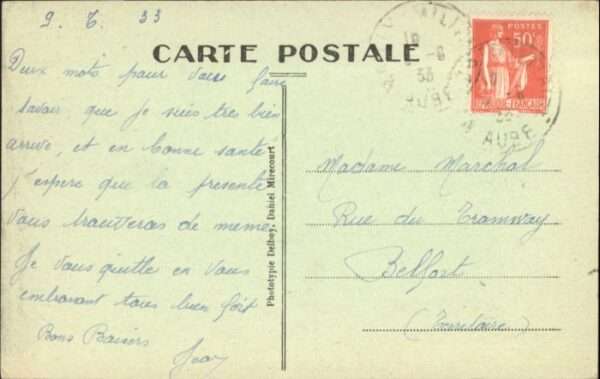 9. 7. 33
CARTE POSTALE
Deux mots pour vous faire
savoir que je suis tres bien
arrive, et en bonne santé
J'espere que la presente
vous trouveras de meme
Je vous quitte en vous
embrassant tous bien fort
Bons Baisers
Jean
Phototypie Delboy, Daniel Mirecourt
POSTES
50c
REPUBLIQUE FRANÇAISE
33
AUBE
AUBE
Madame Marchal
Rue du Tramway
Belfort
(Territoire)